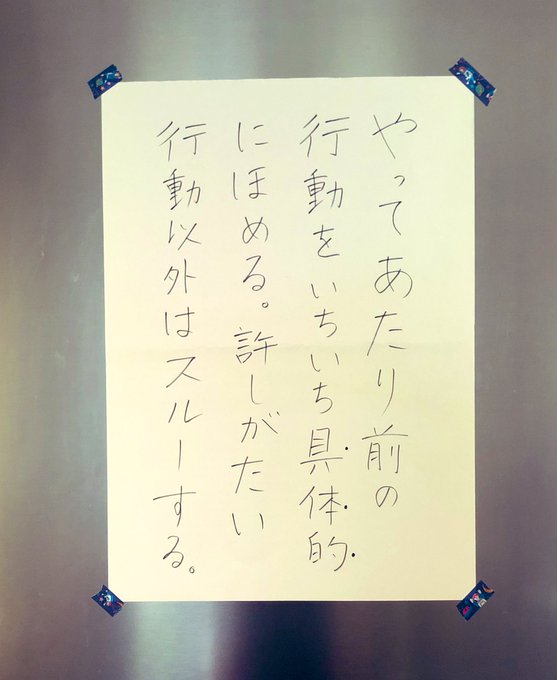 やってあたり前の
行動をいちいち具体的
にほめる。許しがたい
行動以外はスルーする。